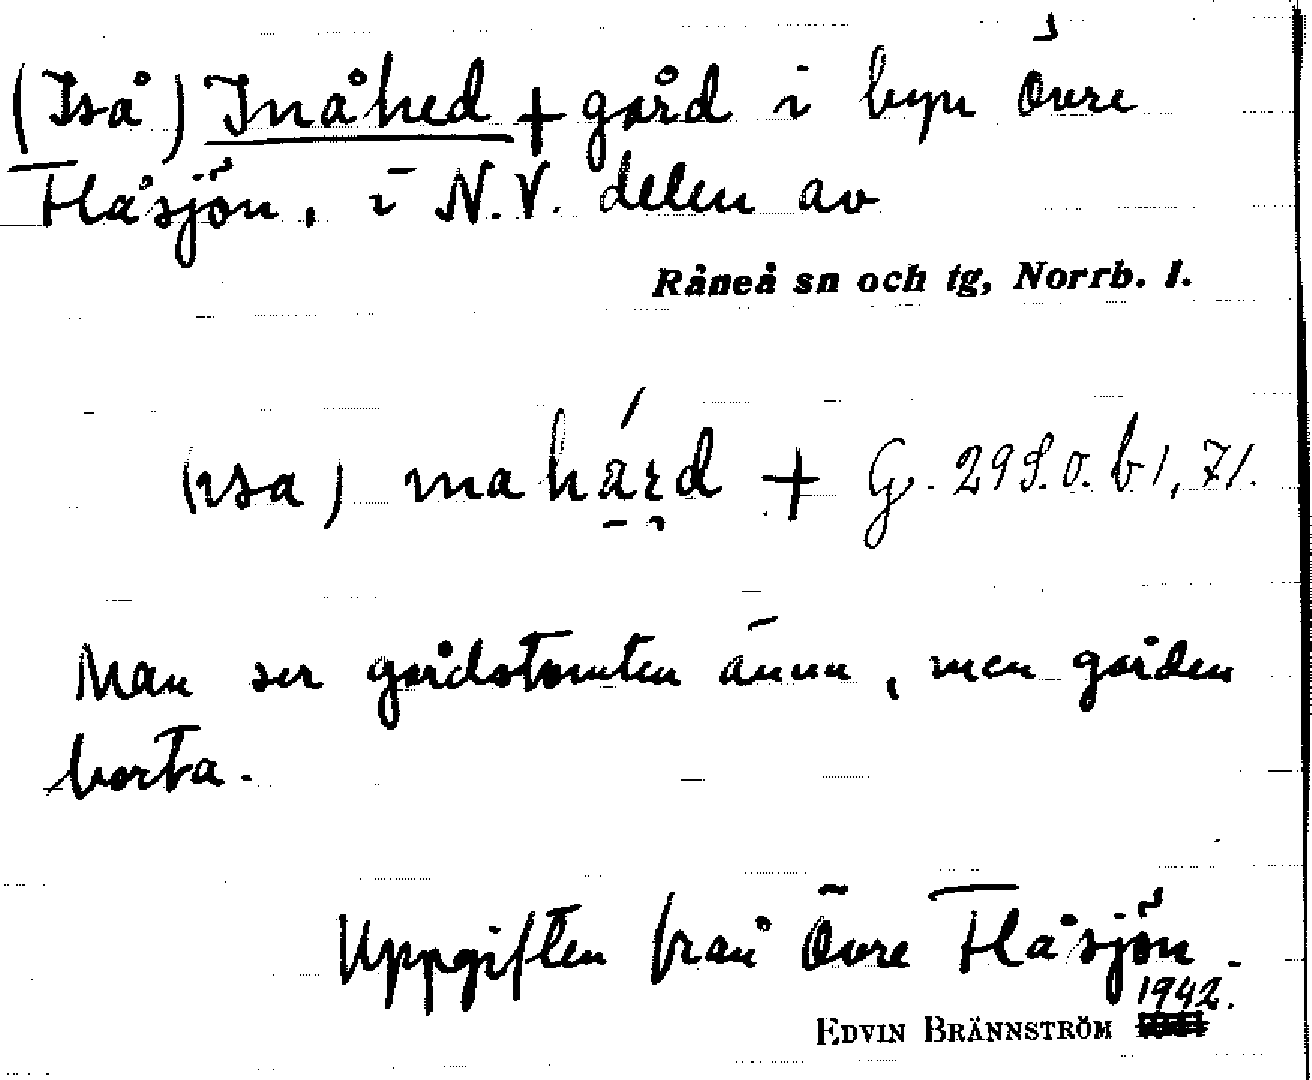 (Iså) Inåhed + gård i byn Övre
Flåsjön, i N.V. delen av
Råneå sn och tg, Norrb. l.
+ G. 293. b 1, 71.
Man ser gårdstomten ännu, men gården
borta.
Uppgiften från Övre Flåsjön.
1942.
EDVIN BRÄNNSTRÖM